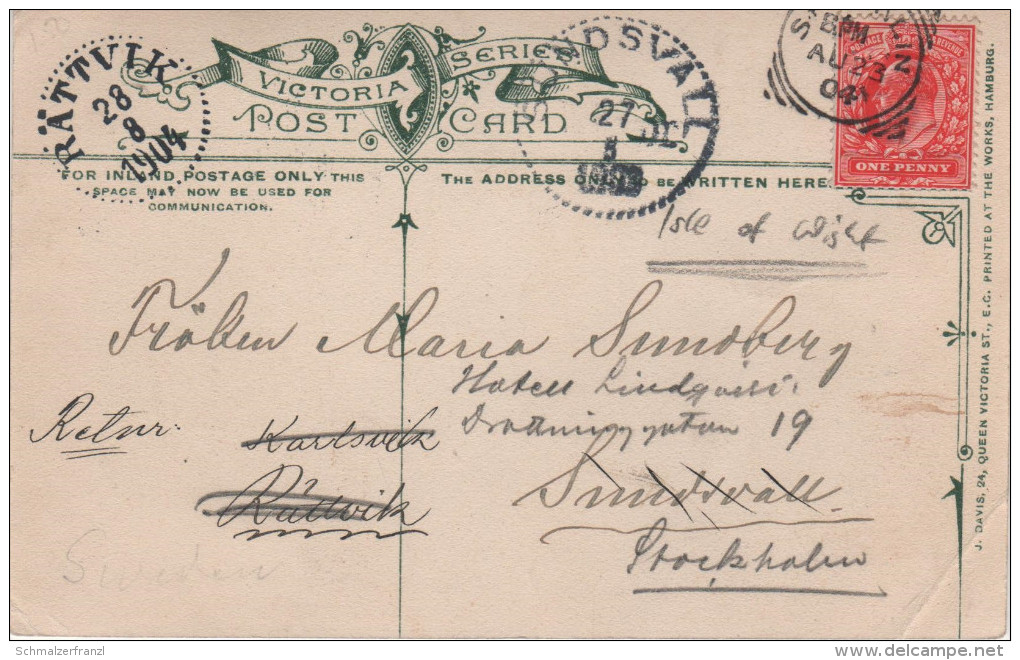 RÄTTVIK
28
8
1904
VICTORIA SERIES
POST CARD
SUNDSVALL
27
8
AU 23
04
ONE PENNY
FOR INLAND POSTAGE ONLY THIS
SPACE MAY NOW BE USED FOR
COMMUNICATION.
THE ADDRESS ONLY TO BE WRITTEN HERE.
Isle of Wight
Fröken Maria Sundberg
Hotell Lindqvist.
Drottninggatan 19
Retur
Karlsvik
Rättvik
Sundsvall
Stockholm
Sweden
J. DAVIS, 24, QUEEN VICTORIA ST., E.C. PRINTED AT THE WORKS, HAMBURG.
Schmalzerfranzl
delcampe.net